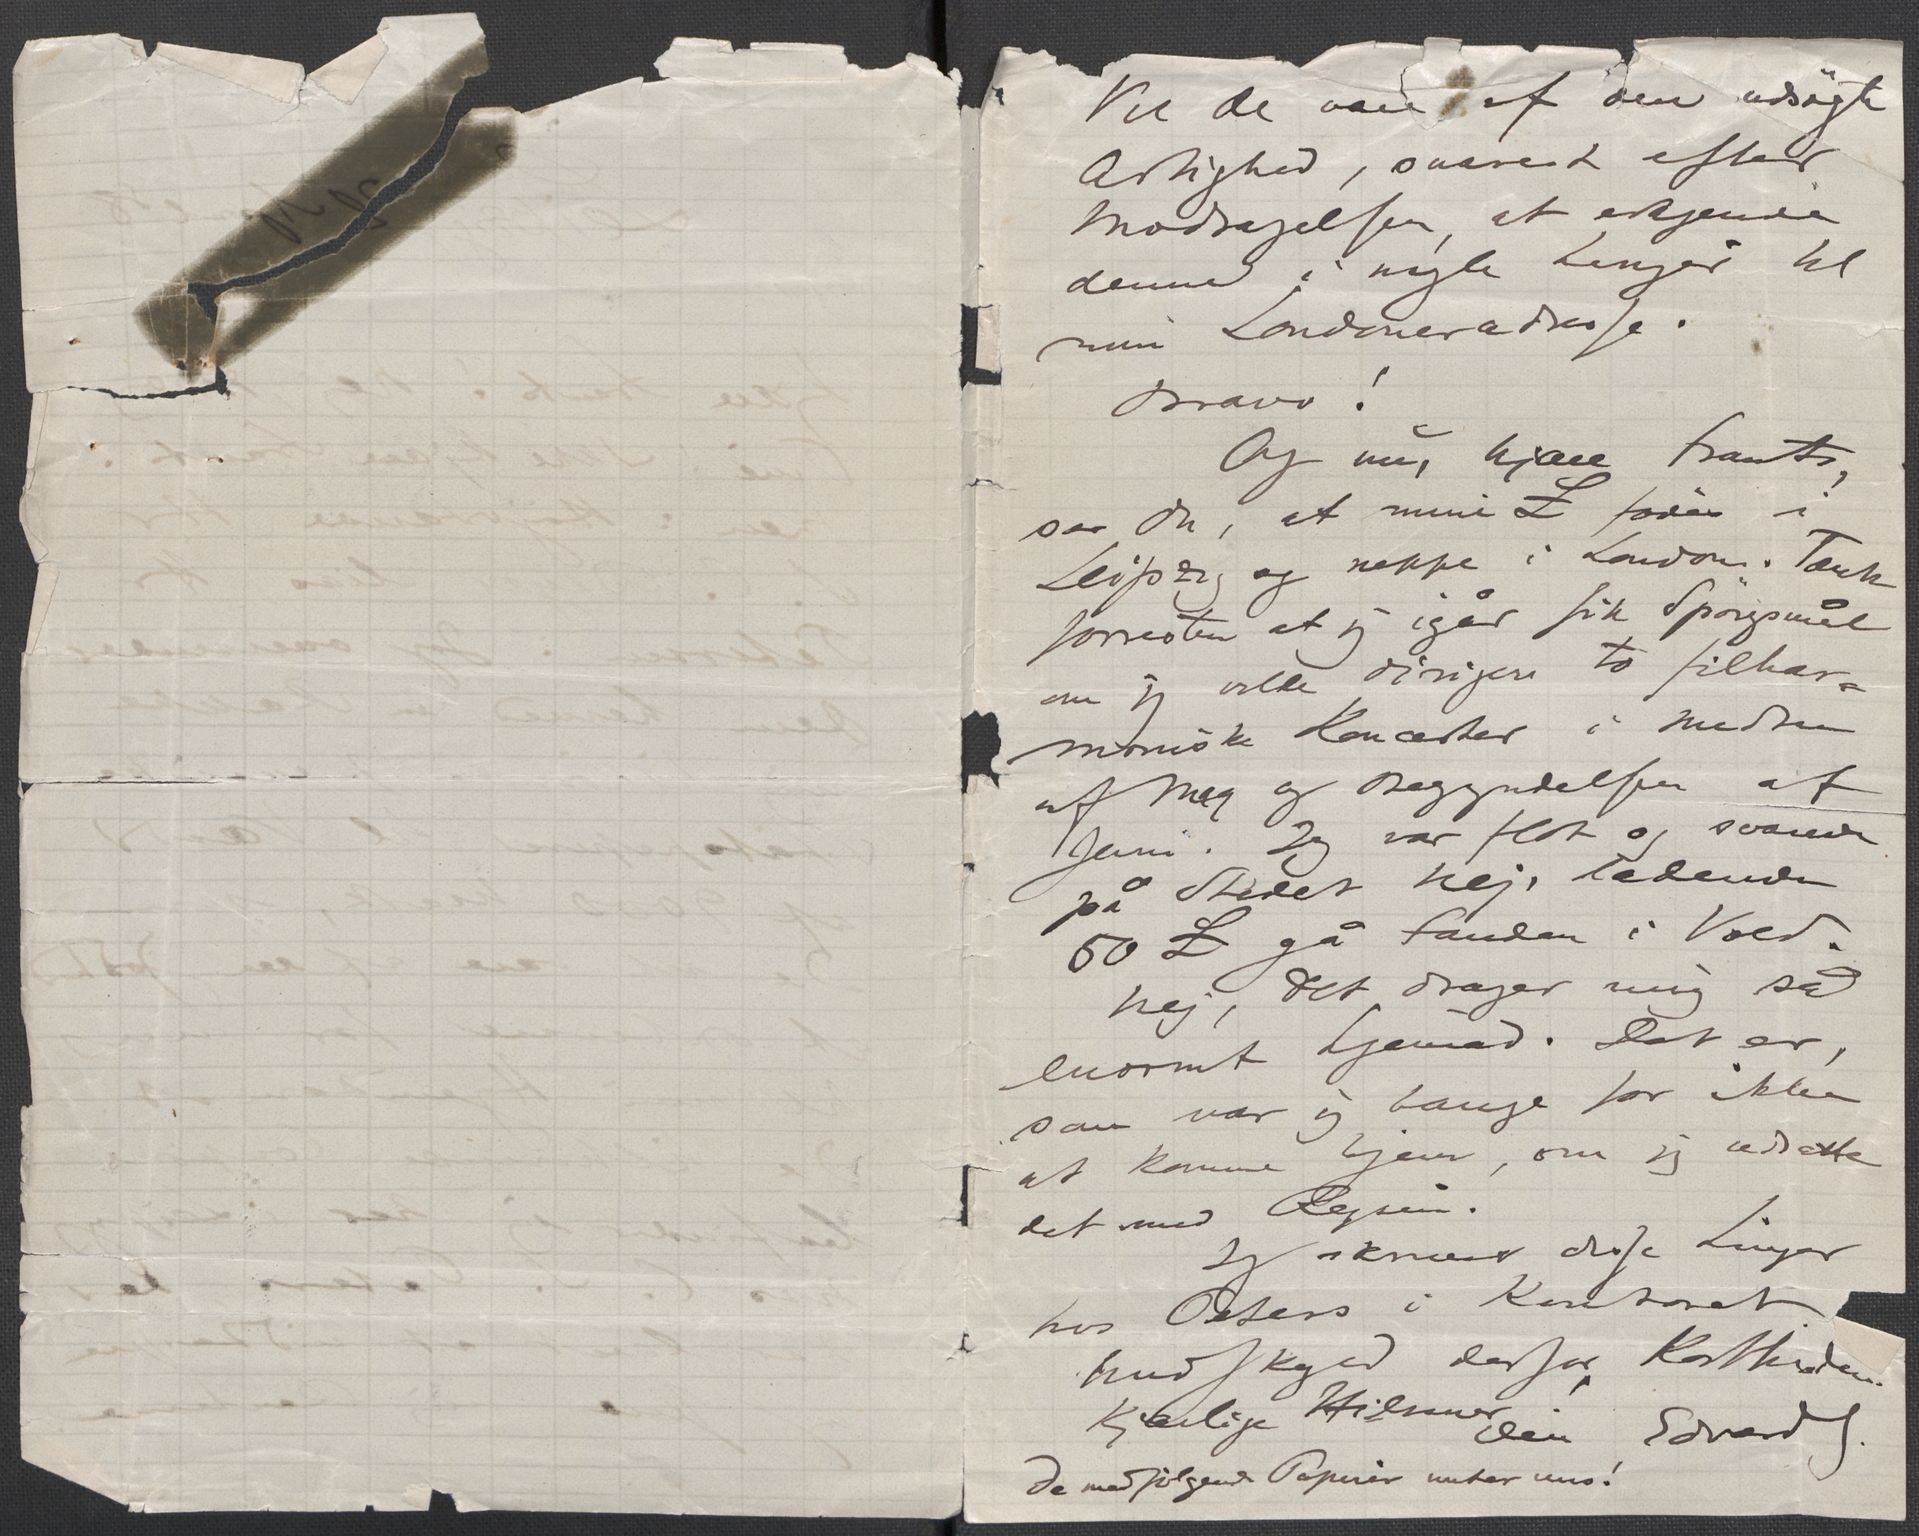 Vil De være af den udsøgte
Artighed, snarest efter
Modtagelsen, at erkjende
denne i nogle Linjer til
min Londoneradresse.
Bravo!
Og nu, kjære Frants,
ser Du, at mine £ først i
Leipzig og neppe i London. Tænk
forresten at jeg igår fik Spörgsmål
om jeg vilde dirigere to filhar-
moniske Koncerter i Midten
af Maj og Begyndelsen af
Juni. Jeg var flot og svarede
på Stedet nej, ladende
50 £ gå Fanden i Vold.
Nej, det drager mig så
enormt hjemad. Det er,
som var jeg bange for ikke
at komme hjem, om jeg udsatte
det med Rejsen.
Jeg skriver disse Linjer
hos Peters i Kontoret
Undskyld derfor Kortheden.
Kjærlige Hilsener
Din Edvard G.
De medfølgende Papirer unter uns!